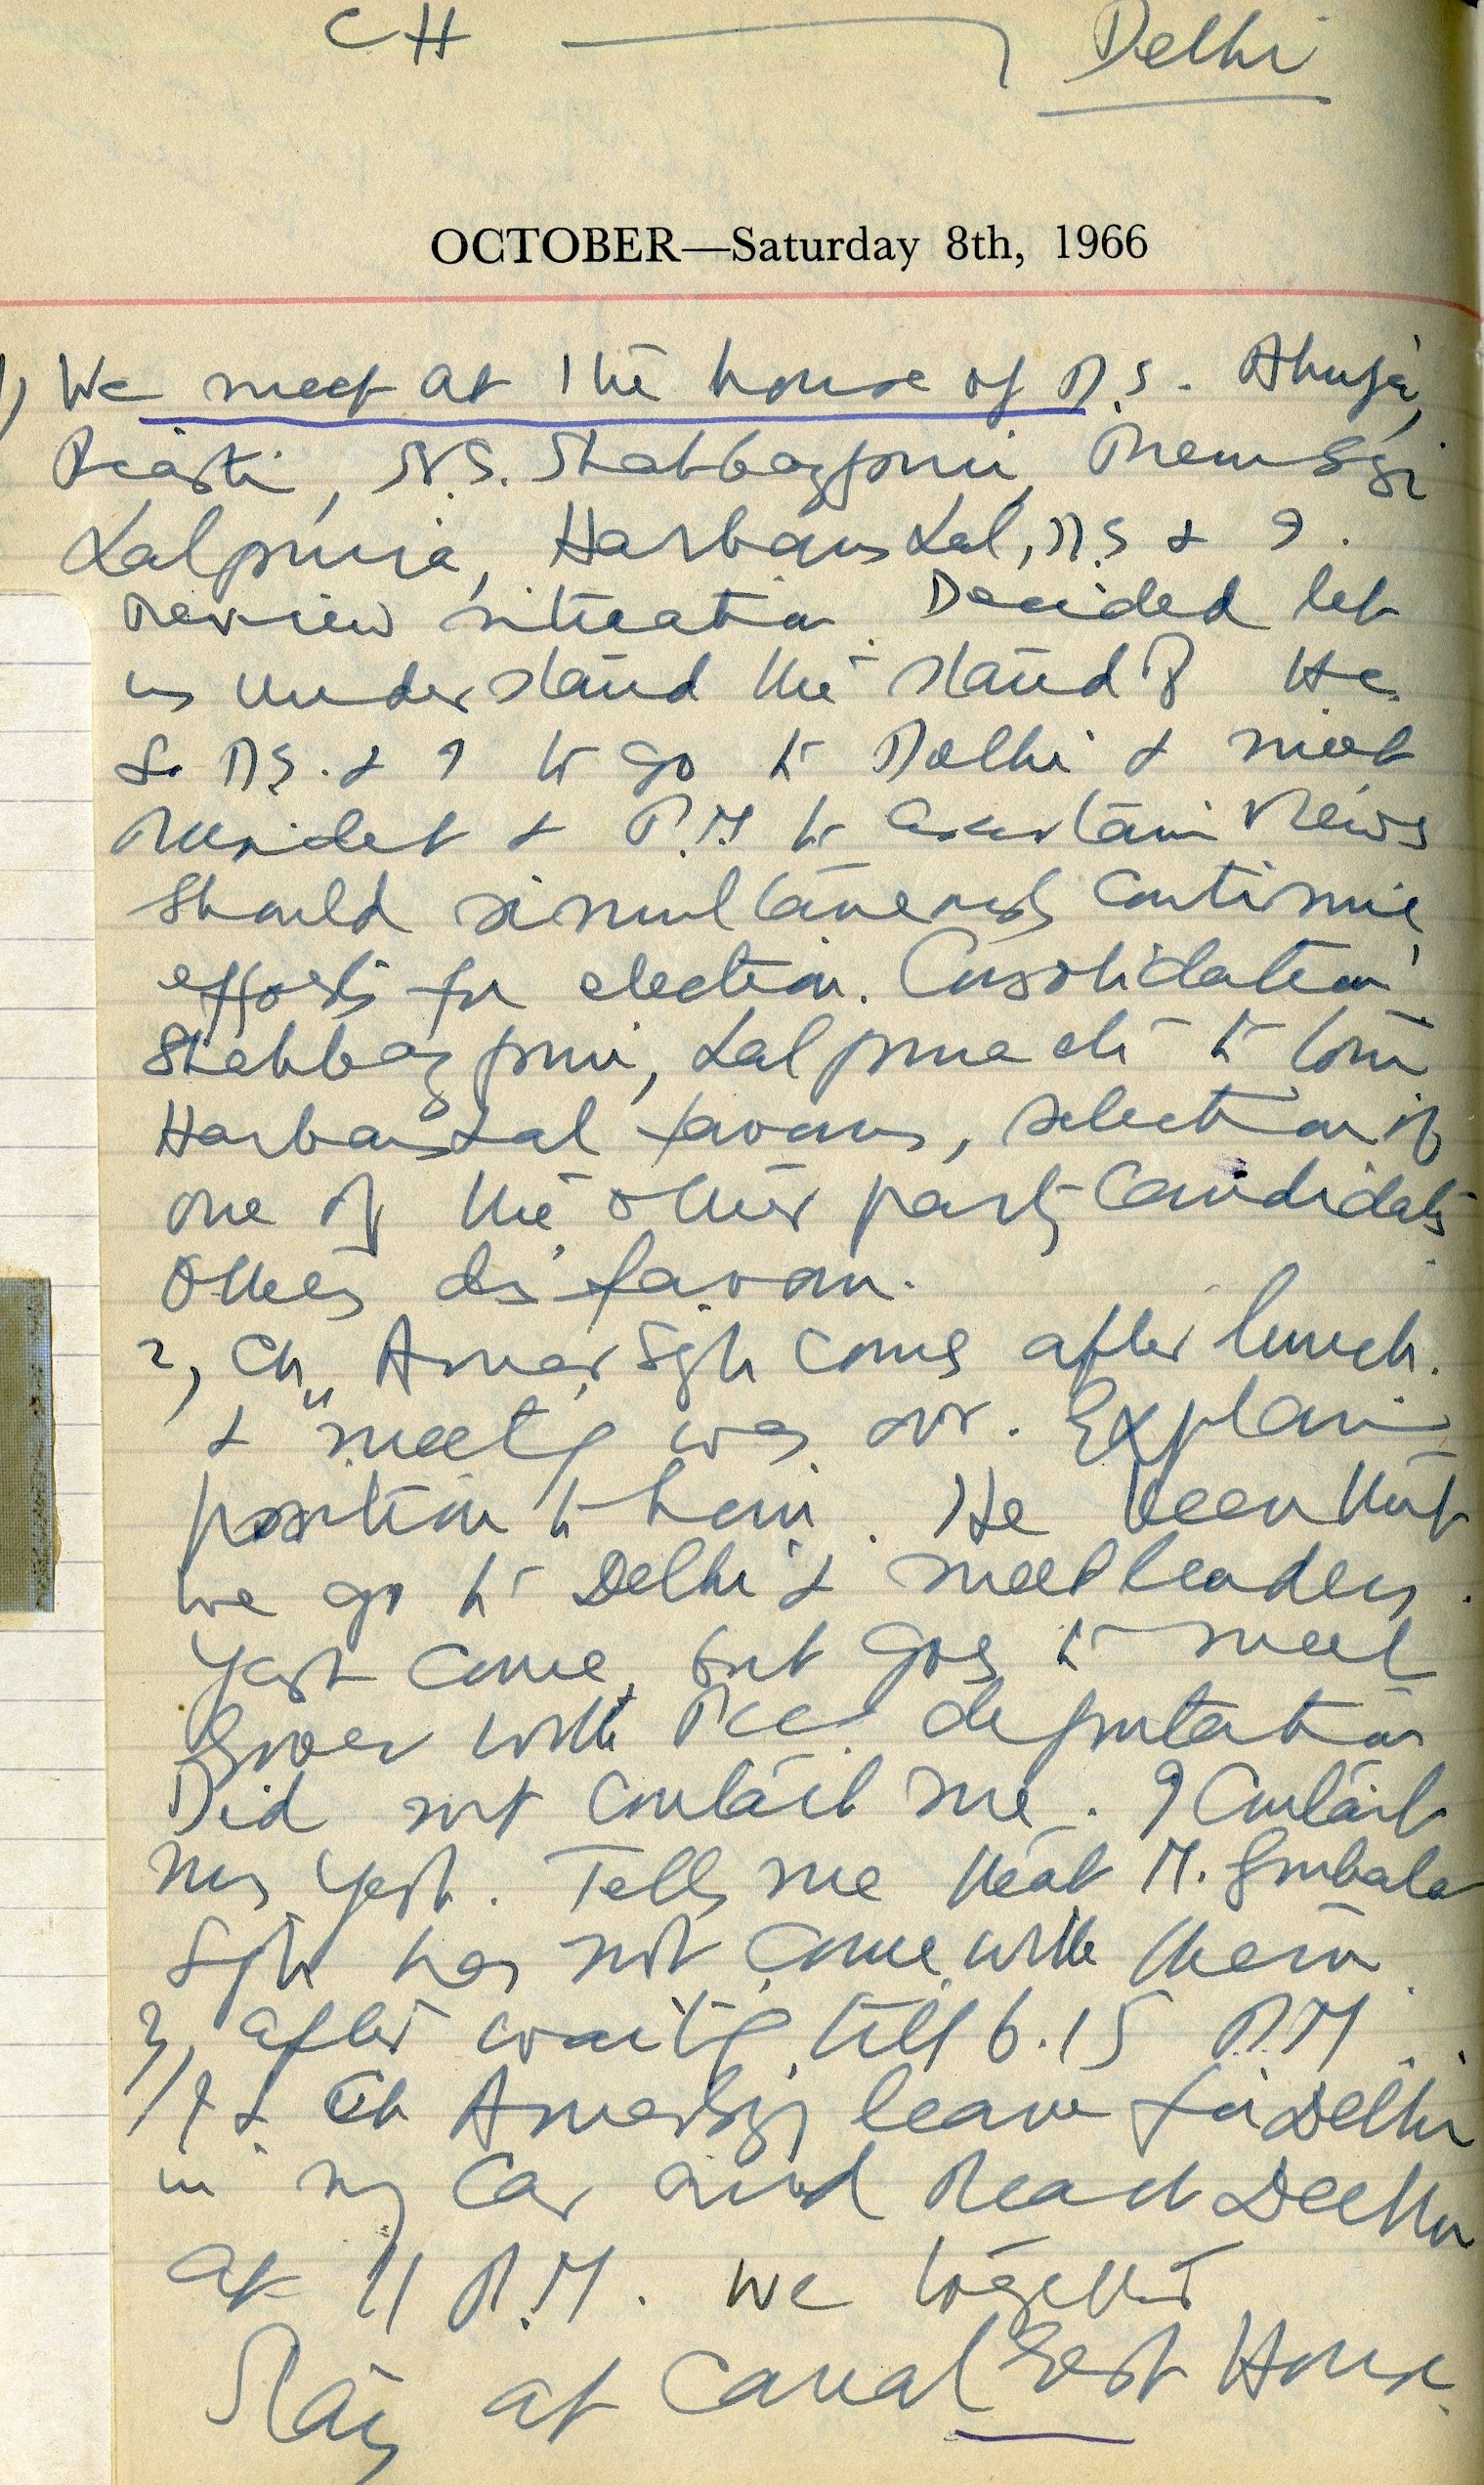 CH — Delhi
OCTOBER—Saturday 8th, 1966
1) We meet at the house of P.S. Ahuja,
N.S. Shahbazpuri, Prem Sgi
Lalpuria, Harbans Lal, P.S & I.
Review situation. Decided let
us understand the stand of He
So P.S. & I to go to Delhi & meet
President & P.M to ascertain views
Should simultaneously continue
efforts for election. Consolidation
Shahbazpuri, Lalpuria to
Harbans Lal favours, selection of
one of the other party candidates
Others disfavour.
2) Ch. Amar Sgh comes after lunch.
& meetg was over. Explain
position to him. He keen that
we go to Delhi & meet leaders.
Yash come, but goes to meet
Gover with PCC deputation
Did not contact me. I contact
Mrs Yash. Tells me that M. Gurbala
Sgh has not come with them.
3, After waitg till 6.15 P.M
I & Ch Amar Sgh leave for Delhi
in my car and reach Delhi
at 11 P.M. We together
Stay at Canal Gest House.